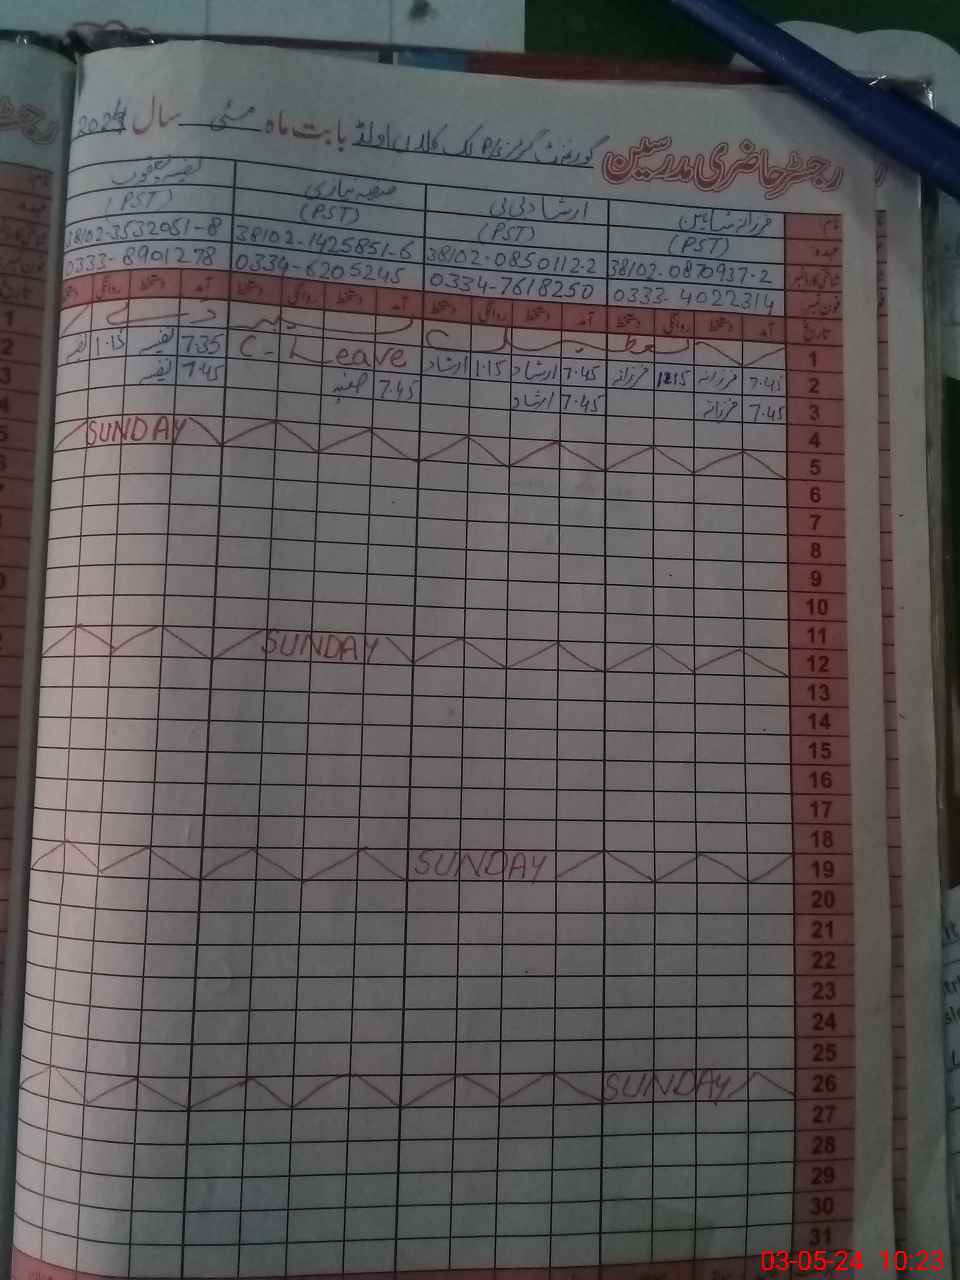 رجسٹر حاضری مدرسین گورنمنٹ گرلز P/S کلاں اولڈ بابت ماہ مئی سال 2024
نام فرزانہ شاہین ارشاد بی بی صفیہ نیازی
عہدہ (PST) (PST) (PST) (PST)
38102-0870937-2 38102-0850112-2 38102-1425851-6 38102-3532051-8
فون نمبر 0333-4022314 0334-7618250 0334-6205245 0333-8901278
تاریخ آمد دستخط روانگی دستخط آمد دستخط روانگی دستخط آمد دستخط روانگی دستخط آمد دستخط روانگی دستخط
1
2 7.45 فرزانہ 12.15 فرزانہ 7.45 ارشاد 1.15 ارشاد C-Leave 7.35 نفیسہ 1.15 نفیسہ
3 7.45 فرزانہ 7.45 ارشاد 7.45 صفیہ 7.45 نفیسہ
4
5 SUNDAY
6
7
8
9
10
11
12 SUNDAY
13
14
15
16
17
18
19 SUNDAY
20
21
22
23
24
25
26 SUNDAY
27
28
29
30
31
03-05-24 10:23